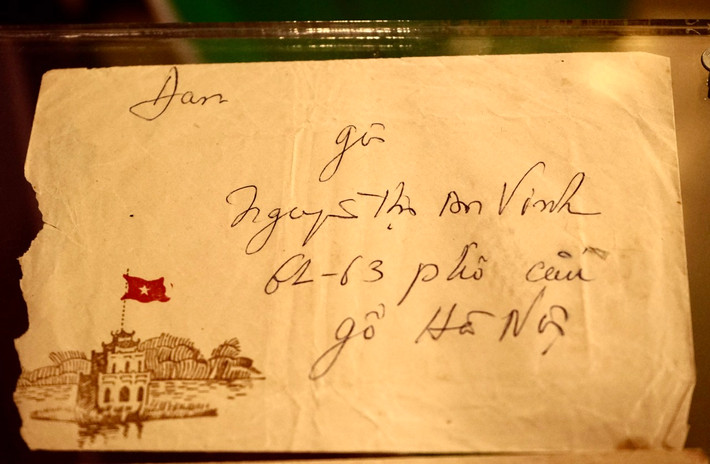 Đan
gửi
Nguyễn Thị An Vinh
61-63 phố cầu
gỗ Hà Nội